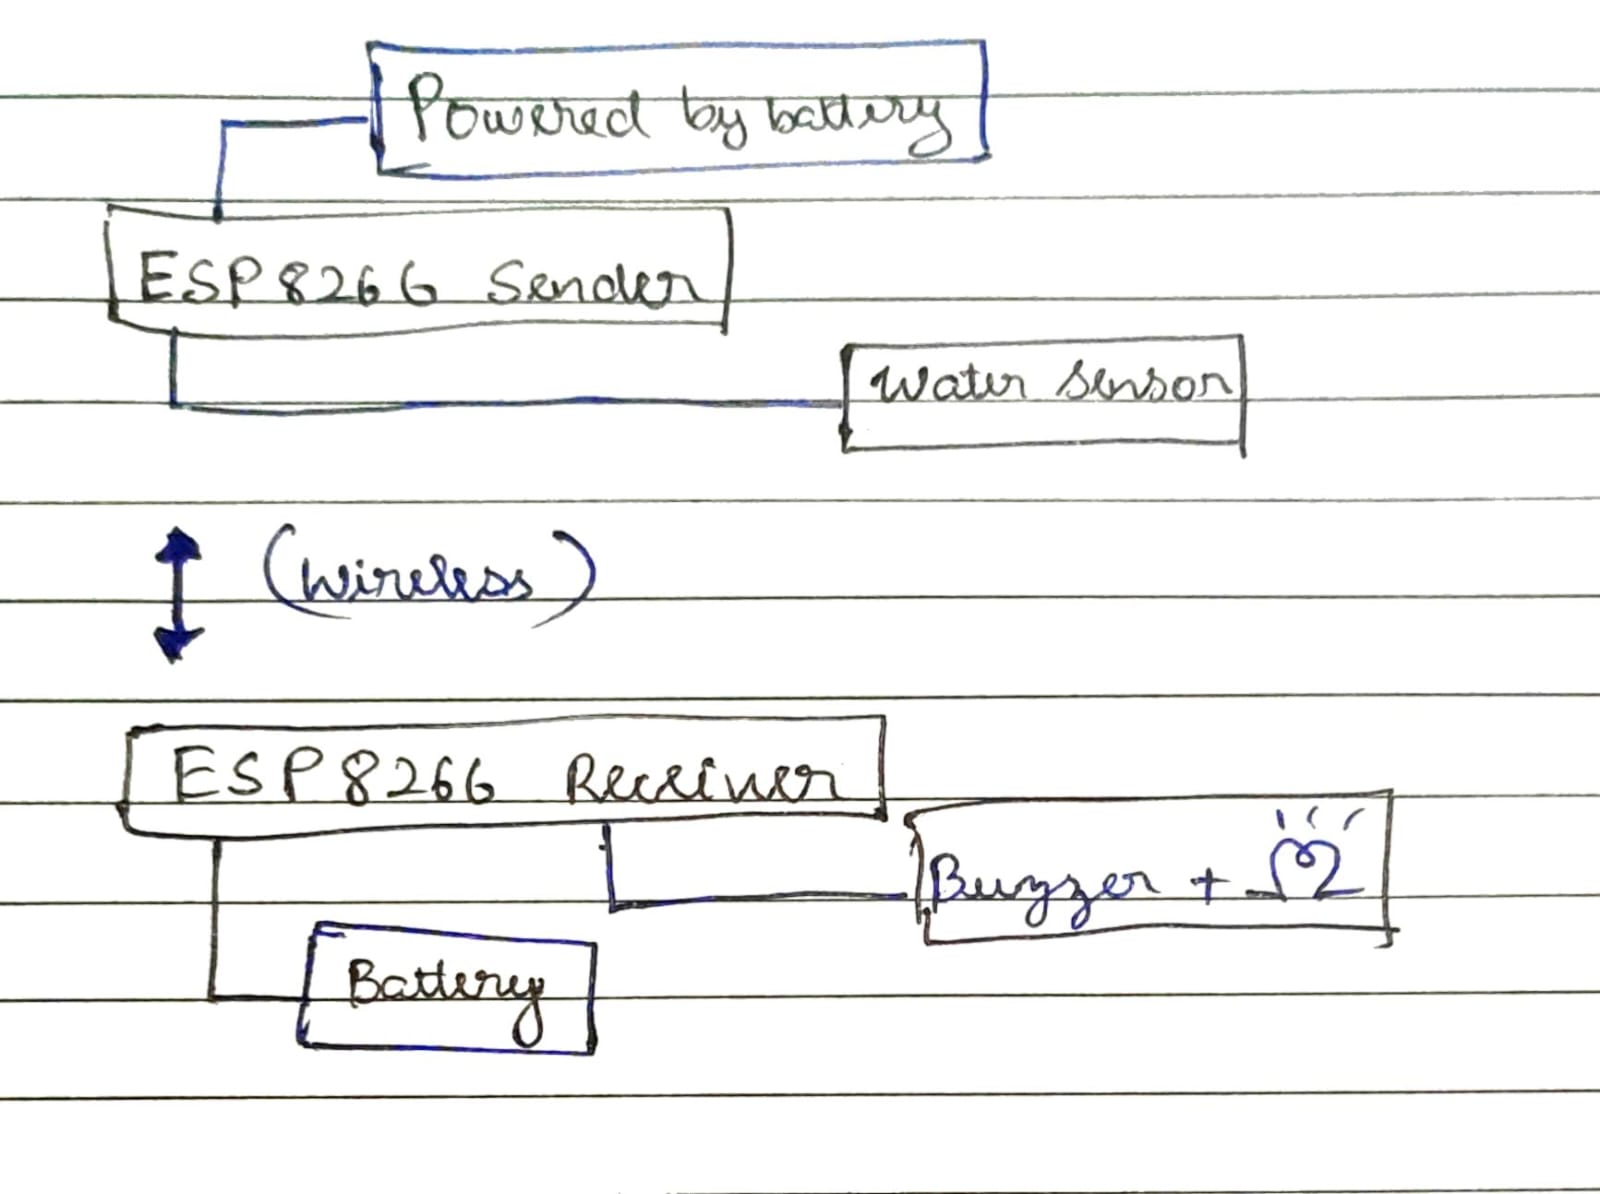 Powered by battery
ESP8266 Sender
Water sensor
(wireless)
ESP8266 Receiver
Buzzer +
Battery